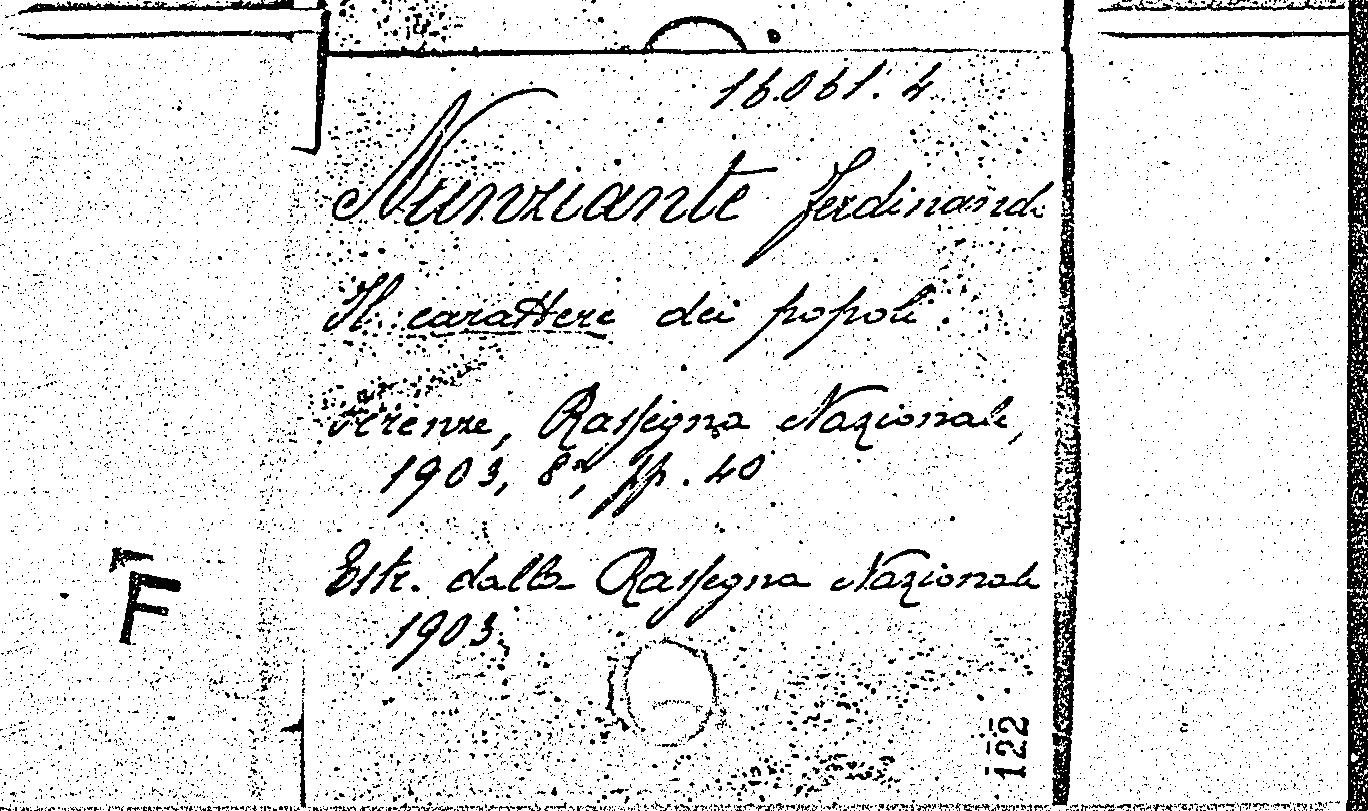 16.061.4
Nunziante Ferdinando
Il carattere dei popoli.
Firenze, Rassegna Nazionale,
1903, 8°, pp. 40
Estr. dalla Rassegna Nazionale
1903.
F
122